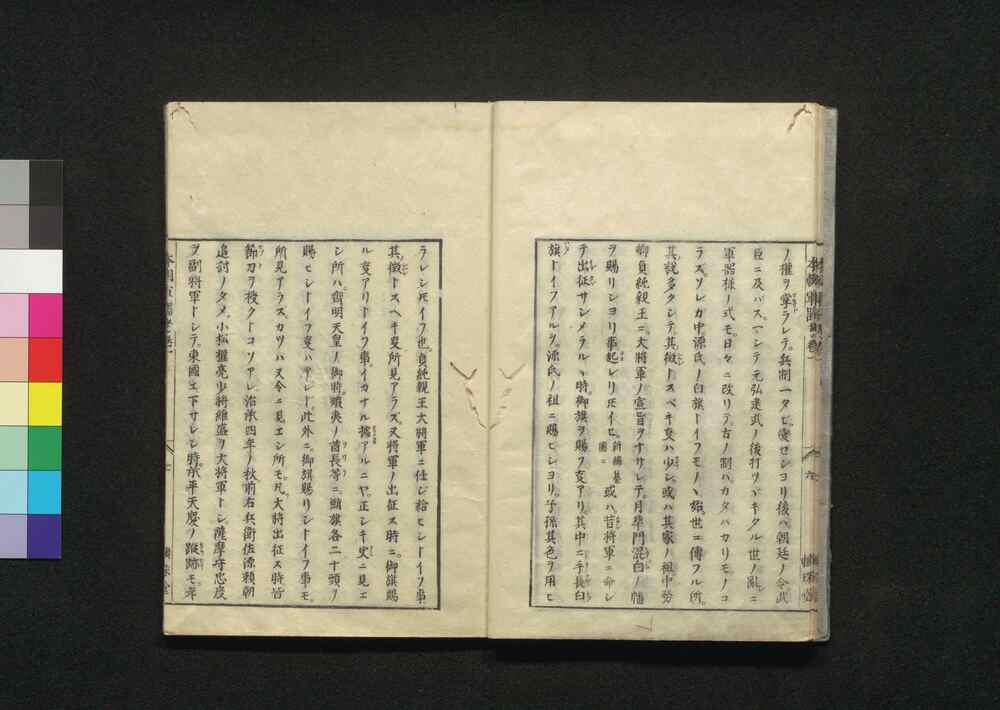 ノ權ヲ掌ラレテ。兵制一タビ變セシヨリ後ハ。朝廷ノ令式
臣ニ及バズ。マシテ元弘建武ノ後打ツヾキタル世ノ亂ニ
軍器樣ノ式モ。日々ニ改リテ。古ノ制ハカタバカリモノコ
ラズ。ソレガ中源氏ノ白旗トイフモノハ。
其説多クシテ。其徴トスベキ事ハ少シ。或ハ其家ノ祖中務
卿貞純親王ニ。大將軍ノ宣旨ヲナサレテ。月華門
ヲ賜リシヨリ事起レリ圧イヒ。或ハ昔將軍ニ命シ
テ出征サシメラルヽ時。御旗ヲ賜フ事アリ。其中ニ手長白
旗トイフアルヲ。源氏ノ祖ニ賜ヒショリ。子孫其色ヲ用ヒ
ラレシ圧イフ也。貞純親王大將軍ニ任ジ給ヒシトイフ事
其徴トスヘキ事所見アラズ。又將軍ノ出征ス時ニ。御旗賜
ル事アリトイフ事。イカナル據アルニヤ。正シキ史ニ見エ
シ所ハ。齊明天皇ノ御時。蝦夷ノ酋長等ニ。鮹旗各二十頭ヲ
賜ヒシトイフ事ハアレド。此外ニ。御旗賜リシトイフ事モ。
所見アラズ。カツハ又令ニ見エシ所モ。凡大將出征ス時皆
節刀ヲ授クトコソアレ。治承四年ノ秋前右兵衛佐源賴朝
追討ノタメ。小松權亮少將維盛ヲ大將軍トシ。薩摩守忠度
ヲ副將軍トシテ。東國エ下サレシ時。承平天慶ノ蹤跡モ。年